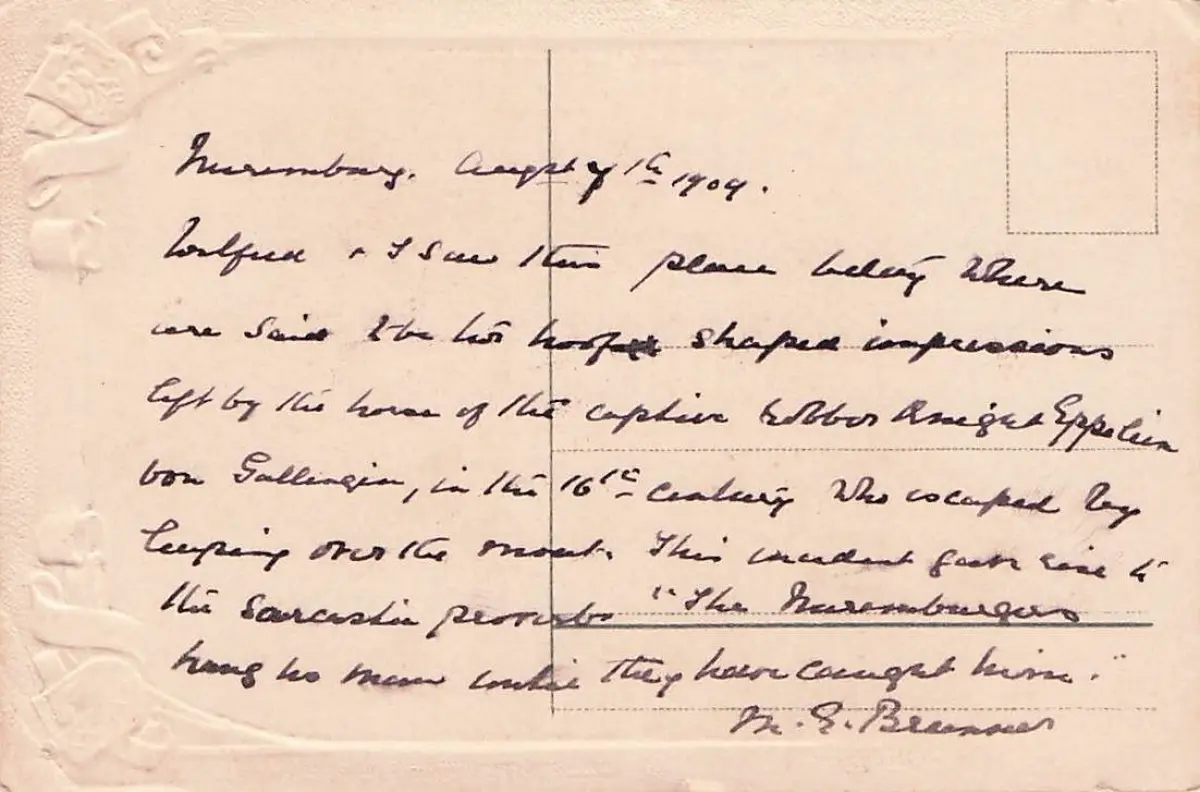 Nuremburg. Augst 7th 1909.
Wilfred & I saw this place today where
are said to be hoof shaped impressions
left by the horse of the captive robber Knight Eppelein
von Gallingin, in the 16th century who escaped by
leaping over the moat. This incident gave rise to
the sarcastic proverb "The Nuremburgers
hang no man until they have caught him."
M. E. Brunner